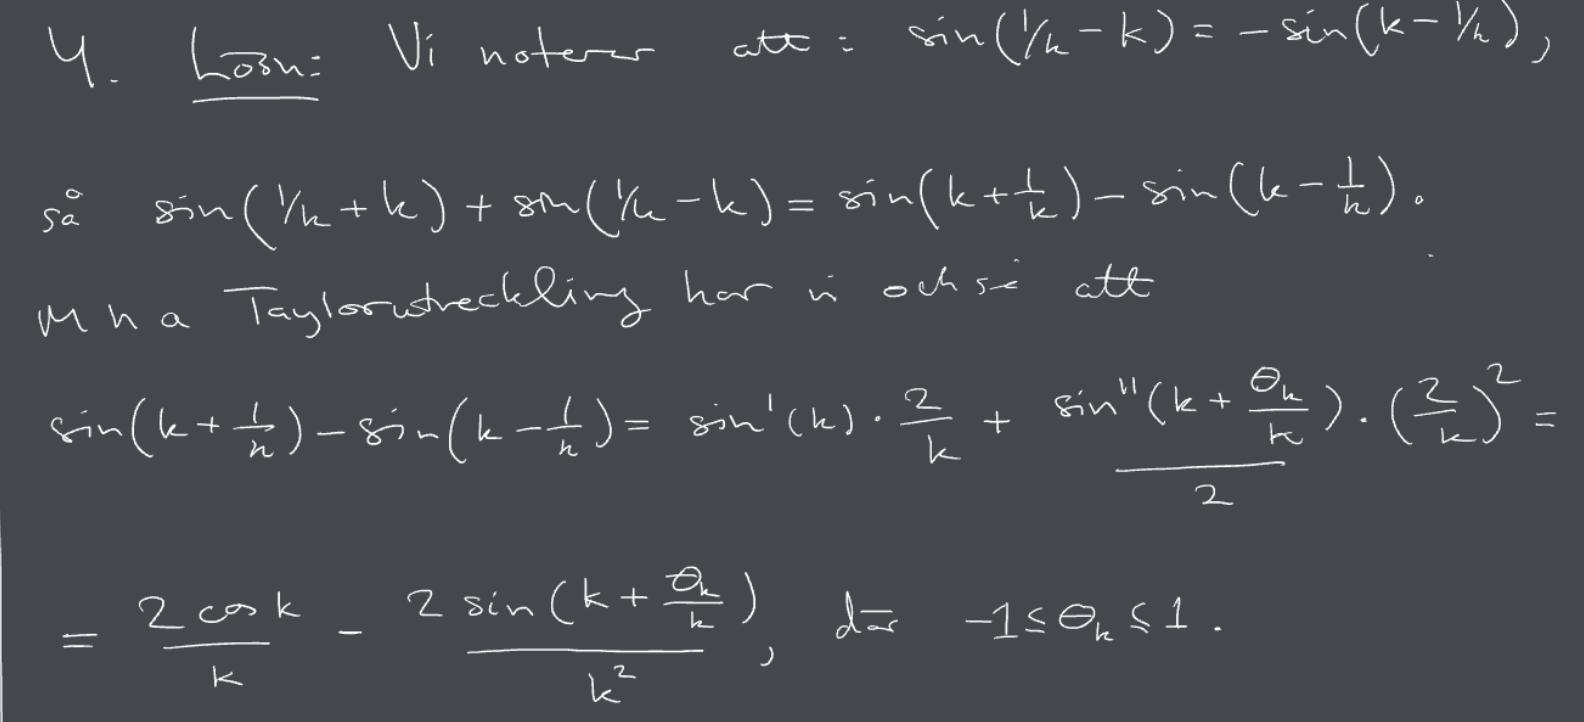 4. Lösn: Vi noterar att: sin(1/k - k) = - sin(k - 1/k),
så sin(1/k + k) + sin(1/k - k) = sin(k + 1/k) - sin(k - 1/k).
M h a Taylorutveckling har vi också att
sin(k + 1/k) - sin(k - 1/k) = sin'(k) · 2/k + sin''(k + θ_k/k)/2 · (2/k)^2 =
= 2 cos k/k - 2 sin(k + θ_k/k)/k^2, där -1 ≤ θ_k ≤ 1.